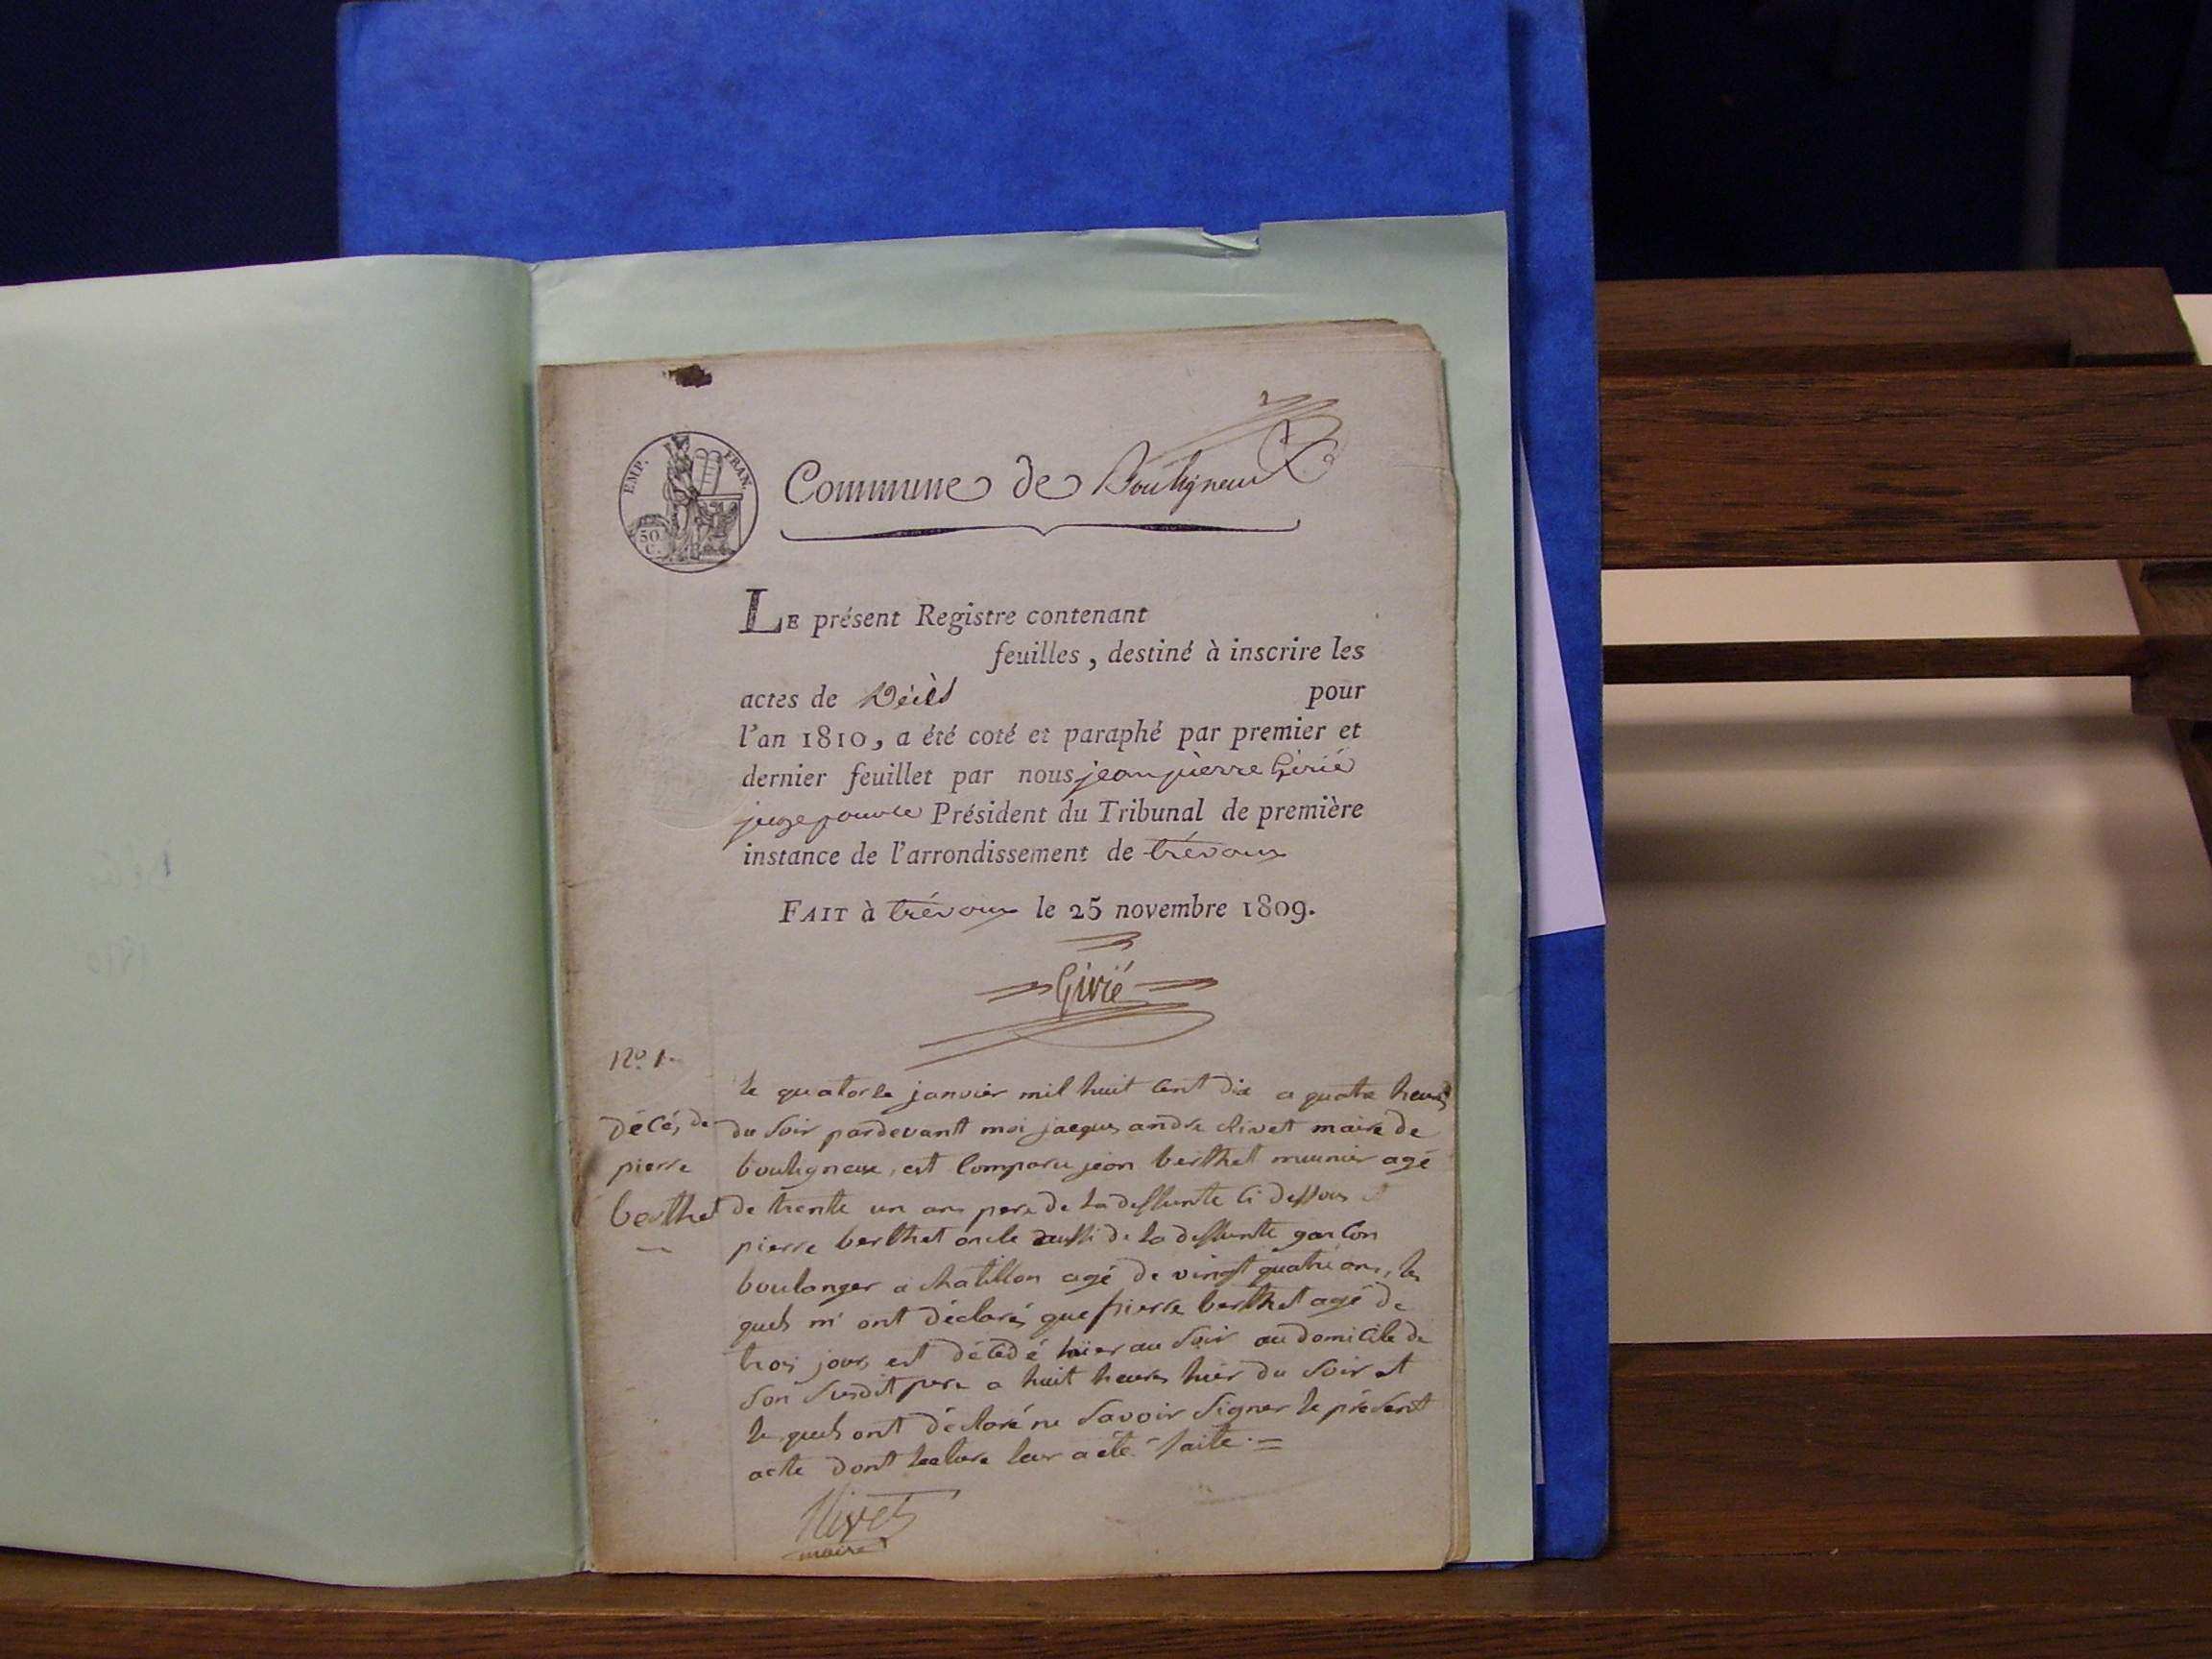 EMP. FRAN.
50 C.
Commune de Bouligneux
LE présent Registre contenant
feuilles, destiné à inscrire les
actes de Décès pour
l'an 1810, a été coté et paraphé par premier et
dernier feuillet par nous jean pierre Girié
juge pour le Président du Tribunal de première
instance de l'arrondissement de trévoux
FAIT à trévoux le 25 novembre 1809.
Girié
No. 1.
décés de
pierre
berthet
le quatorze janvier mil huit cent dix a quatre heures
du soir pardevant moi jacques andre Nivet maire de
bouligneux, est comparu jean berthet meunier agé
de trente un ans pere de la deffunte ci dessous et
pierre berthet oncle aussi de la deffunte garcon
boulanger a chatillon agé de vingt quatre ans, les
quels m'ont déclarés que pierre berthet agé de
trois jours est décédé hier au soir au domicile de
son susdit pere a huit heures hier du soir et
le quels ont déclaré ne savoir signer le présent
acte dont lecture leur a été faite. =
Nivet
maire